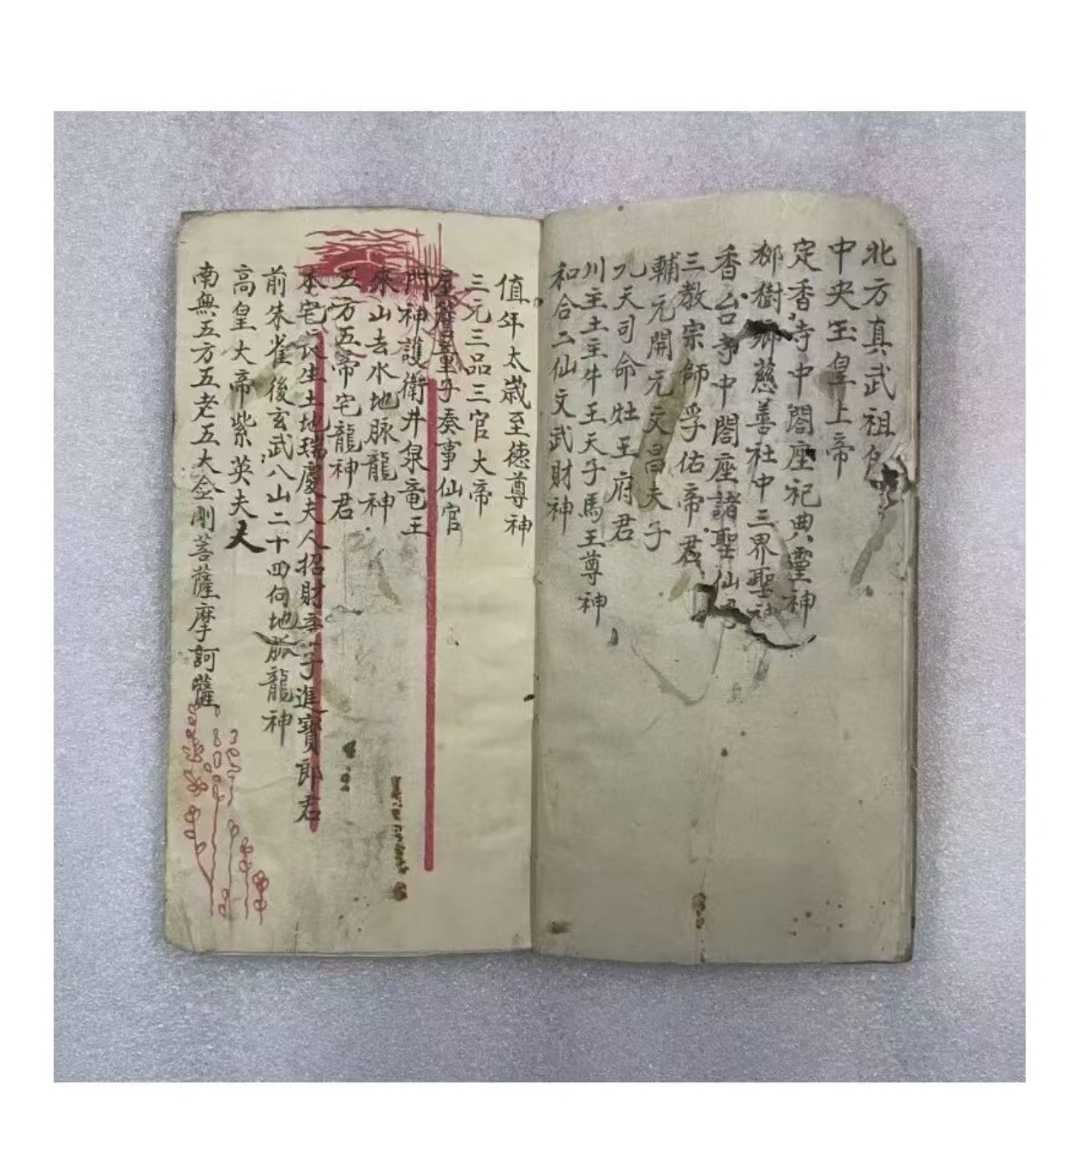 北方真武祖
中央玉皇上帝
定香寺中閤座祀典靈神
梛樹鄉慈善社中三界聖
香台寺中閤座諸聖仙
三教宗師孚佑帝君
輔元開元文昌夫子
九天司命灶王府君
川主土主牛王天子馬王尊神
和合二仙文武財神
值年太歲至德尊神
三元三品三官大帝
童子奏事仙官
門神護衛井泉竜王
來山去水地脉龍神
五方五帝宅龍神君
本宅長生土地瑞慶夫人招財童子進寶郎君
前朱雀後玄武八山二十四向地脈龍神
高皇大帝紫英夫
南無五方五老五大金剛菩薩摩訶薩